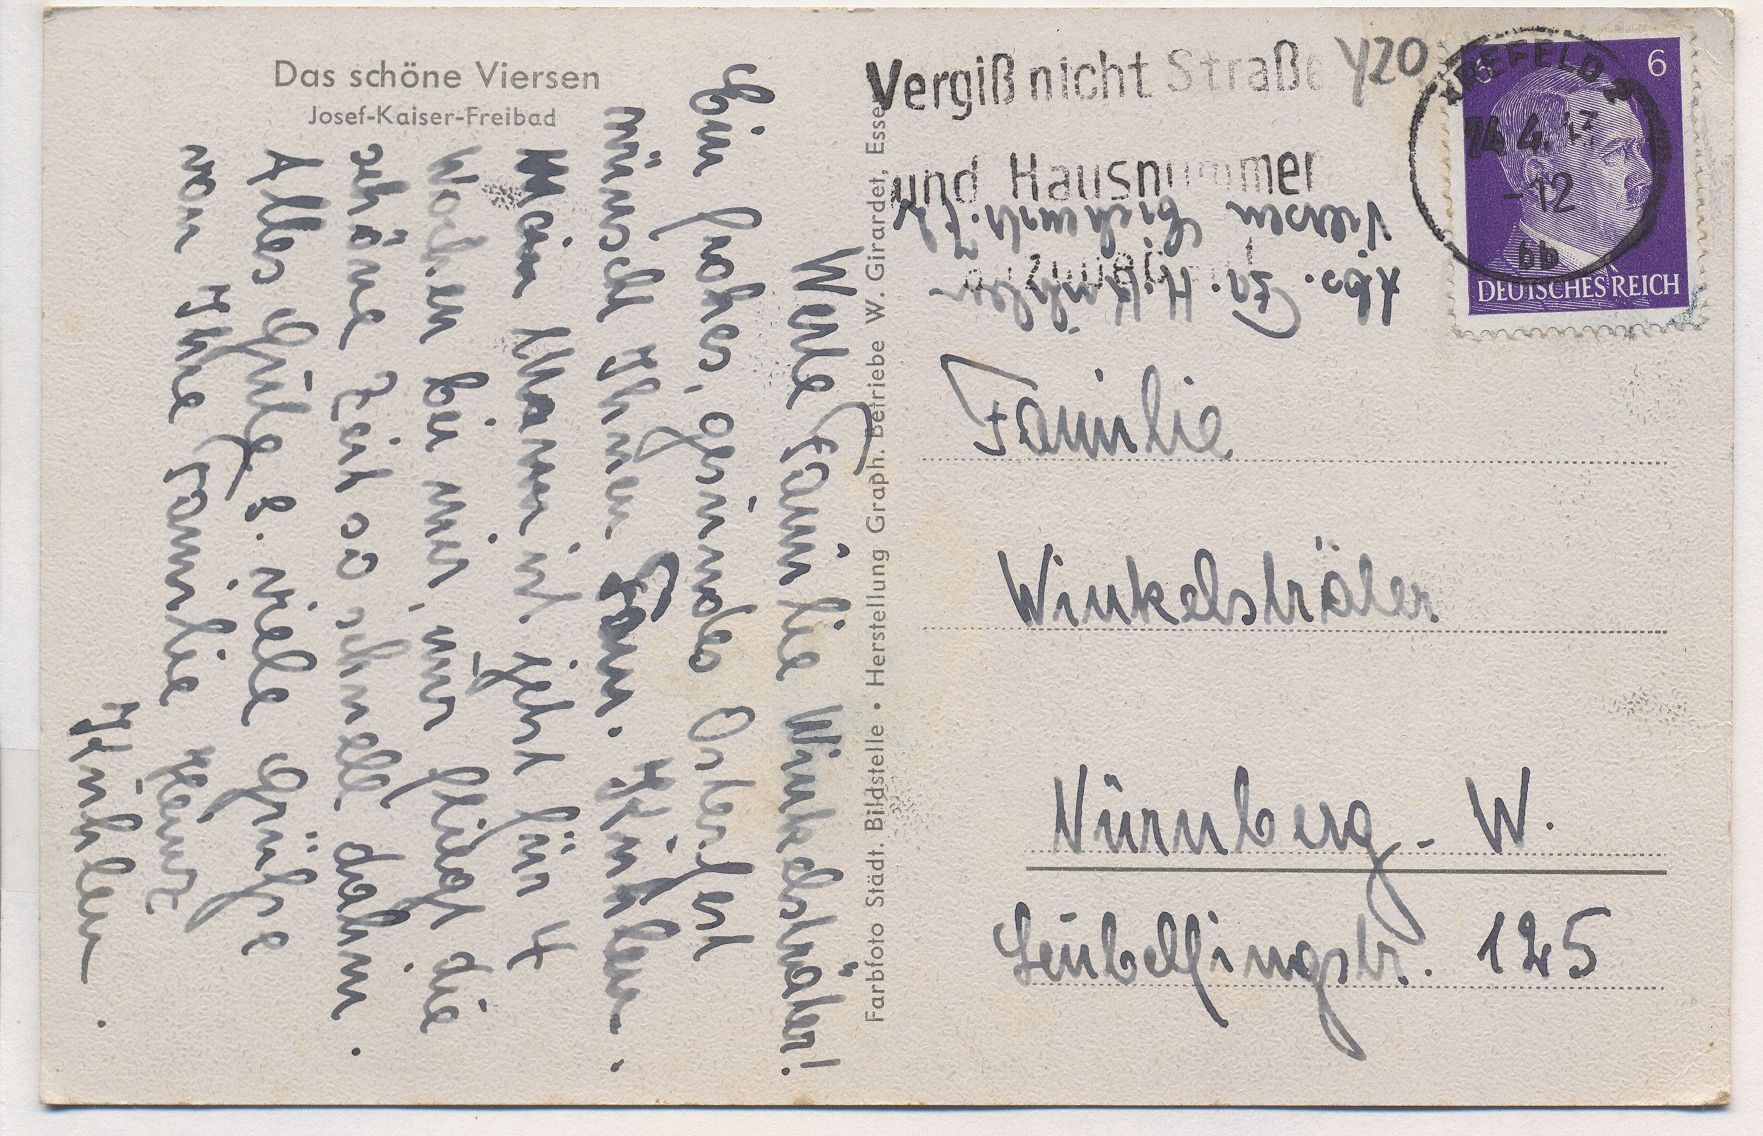 Das schöne Viersen
Josef-Kaiser-Freibad
Werte Familie Winkelsträter!
Ein frohes, gesundes Osterfest
wünscht Ihnen Fam.
Mein Mann ist jetzt für 4
Wochen bei mir, nur fliegt die
schöne Zeit so schnell dahin.
Alles Gute & viele Grüße
von Ihre Familie Heinz
Farbfoto Städt. Bildstelle • Herstellung Graph. Betriebe W. Girardet, Essen
Vergiß nicht Straße
und Hausnummer
anzugeben!
Y20
KREFELD 2
24.4.43
-12
bb
6 6
DEUTSCHES REICH
Abs. Fa. H.
Viersen
Familie
Winkelsträter
Nürnberg - W.
Leubelfingstr. 125